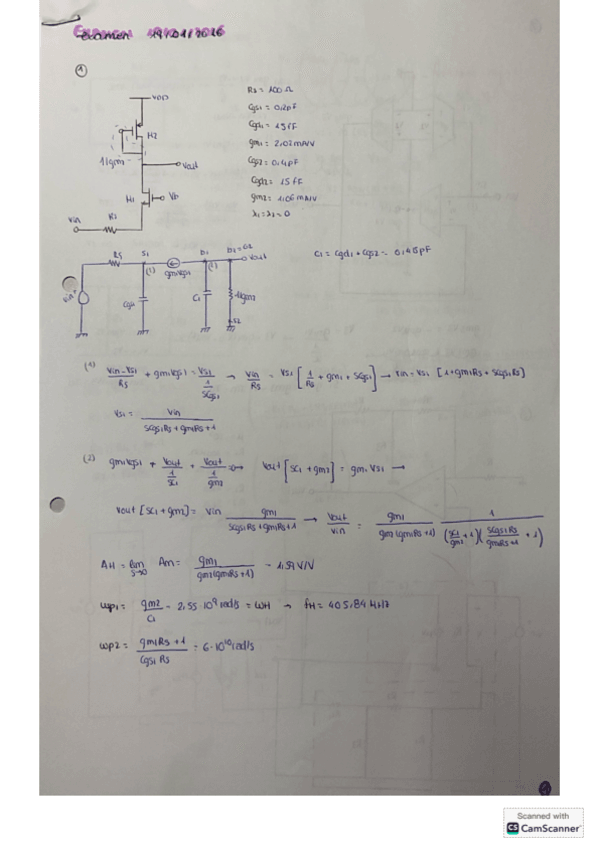 Examen 19/01/2016
1
VDD
M2
1/gm
Vout
M1
Vb
Vin
Rs
Rs = 100 Ω
Cgs1 = 0,2pF
Cgd1 = 15fF
gm1 = 2,02mA/V
Cgs2 = 0,4pF
Cgd2 = 15 fF
gm2 = 1,06mA/V
λ1=λ2=0
Rs
S1
D1
D1=G2
Vout
(1)
gm1Vgs1
(2)
Vin
Cgs1
C1
1/gm2
S2
C1 = Cgd1 + Cgs2 = 0,415pF
(1) (Vin-Vs1)/Rs + gm1Vgs1 = Vs1/(1/sCgs1) → Vin/Rs = Vs1 [1/Rs + gm1 + sCgs1] → Vin = Vs1 [1+gm1Rs + sCgs1Rs]
Vs1 = Vin/(sCgs1Rs + gm1Rs + 1)
(2) gm1Vgs1 + Vout/(1/sC1) + Vout/(1/gm2) = 0 → Vout [sC1 + gm2] = gm1 Vs1 →
Vout [sC1 + gm2] = Vin gm1/(sCgs1Rs + gm1Rs + 1) → Vout/Vin = gm1/(gm2(gm1Rs+1)) 1/((sC1/gm2 + 1)(sCgs1Rs/(gm1Rs+1) + 1))
AM = lim s→0 Am = gm1/(gm2(gm1Rs+1)) = 1,59V/V
wp1 = gm2/C1 = 2,55·10⁹ rad/s = wH → fH = 405,84 MHz
wp2 = (gm1Rs + 1)/(Cgs1 Rs) = 6·10¹⁰ rad/s
Scanned with
CS CamScanner